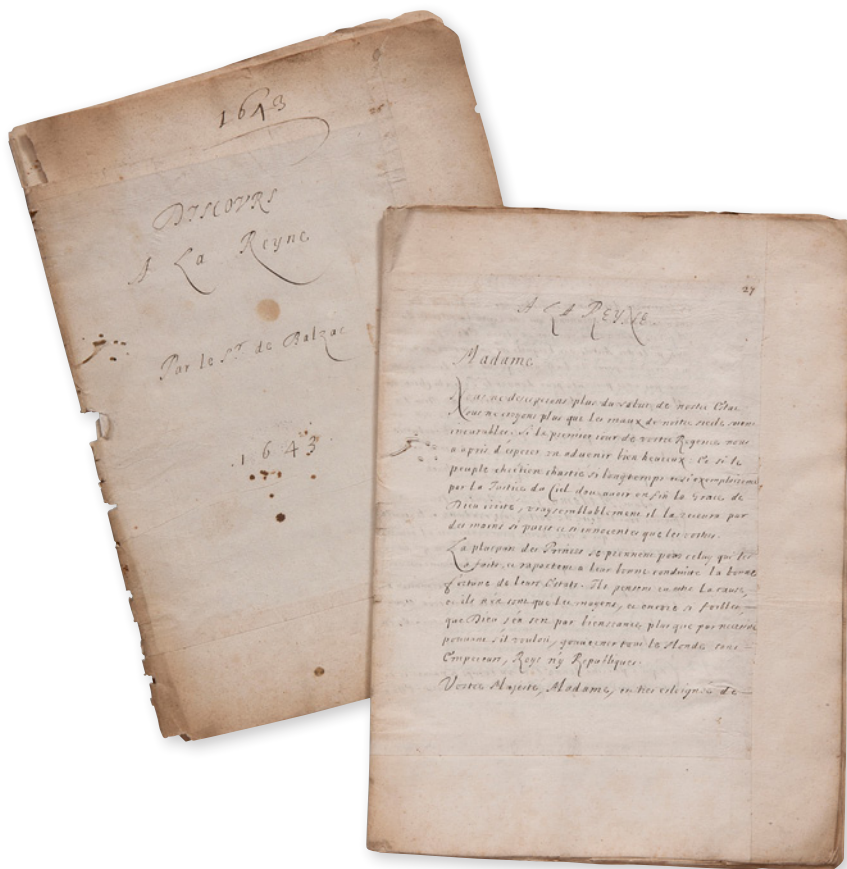 1643
DISCOVRS
A La Reyne
Par le Sr de Balzac
1643
27
A LA REYNE
Madame
Nous ne desesperons plus du salut de nostre Estat
Nous ne croyons plus que les maux de nostre siecle soient
incurables. Si le premier iour de vostre Regence nous
a apris d'esperer un aduenir bien heureux. Et si le
peuple chrestien chastié si longtemps et si exemplairement
par la Justice du Ciel doit auoir enfin la Grace de
Dieu irrité, vraysemblablement il la receura par
des mains si pures et si innocentes que les vostres.
La pluspart des Princes se prennent pour celuy qui les
a faits, et raportent a leur bonne conduite la bonne
fortune de leurs Estats. Ils pensent en estre la cause,
et ils n'en sont que les moyens, et encore si foibles,
que Dieu s'en sert par bienseance plus que par necessité
pouuant s'il vouloit, gouuerner tout le Monde sans
Empereurs, Roys n'y Republiques.
Vostre Majesté, Madame, est tres esloignée de